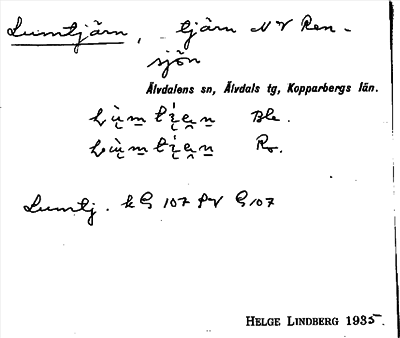 Lumtjärn, tjärn NV Ren-
sjön
Älvdalens sn, Älvdals tg, Kopparbergs län.
Ble.
Ro.
Lumtj. kG 107 PV G 107
HELGE LINDBERG 1935.